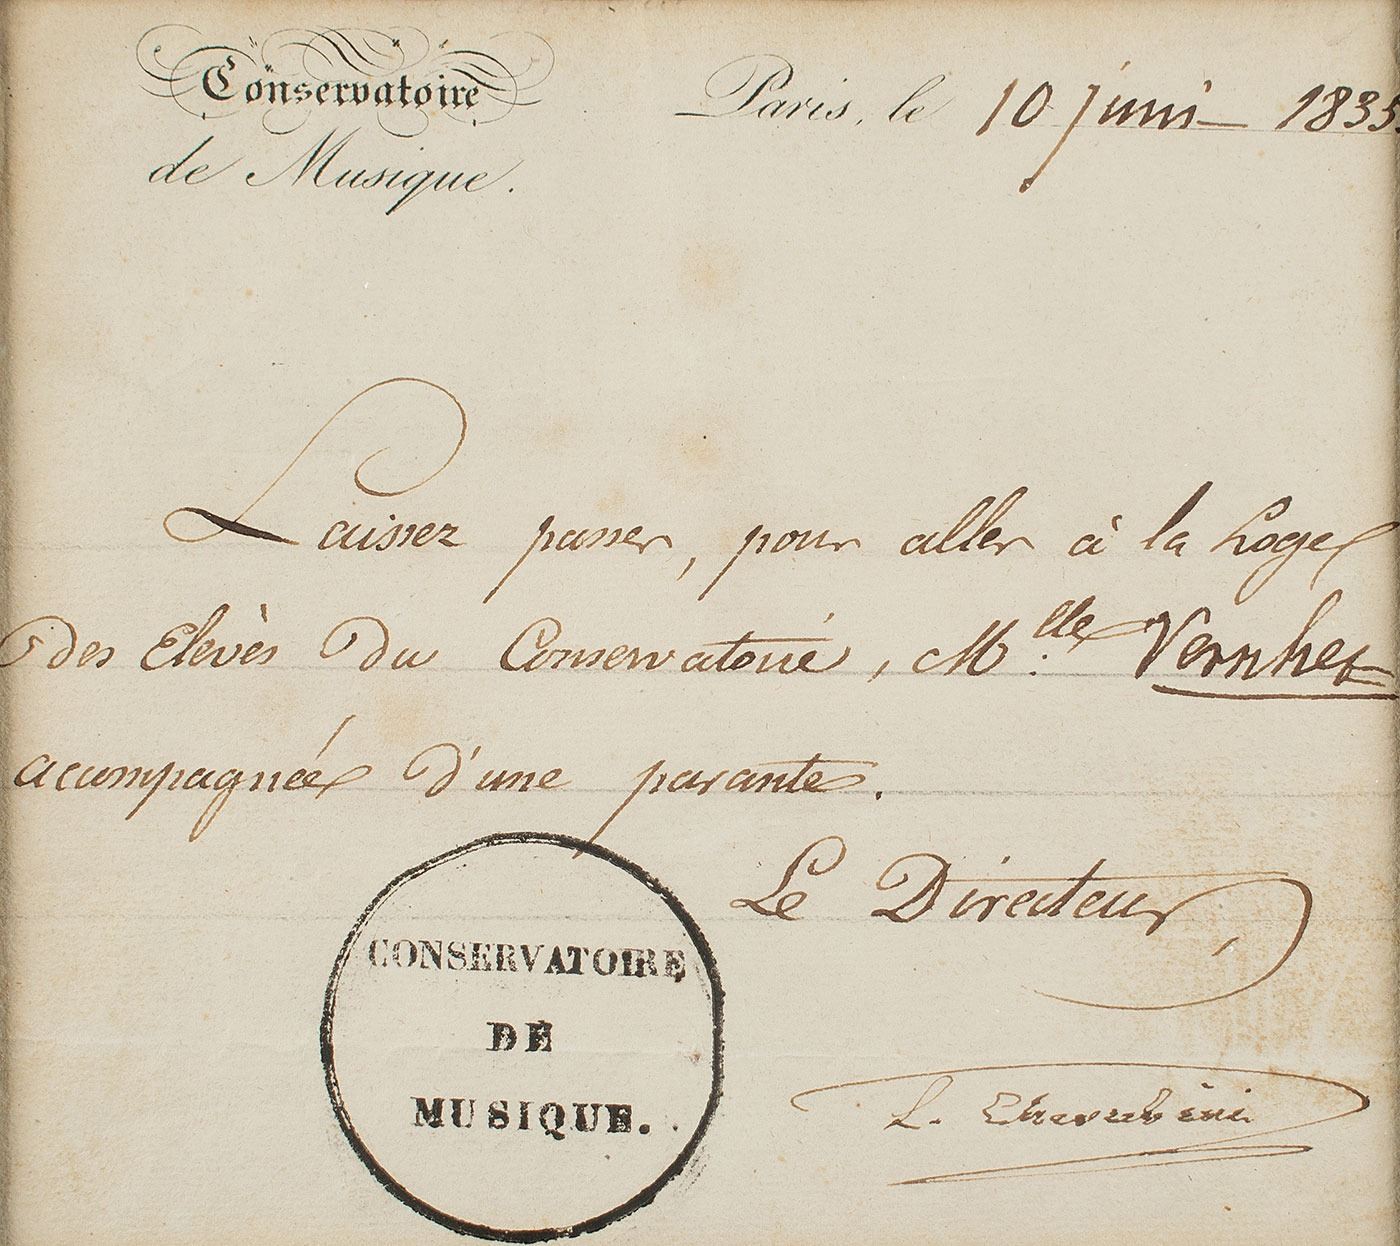 Conservatoire
de Musique.
Paris, le 10 juin 1835
Laissez passer, pour aller à la Loge
des Elevès du Conservatoire, M.lle Vernhet
acompagnée d'une parante.
Le Directeur,
L. Cherubini
CONSERVATOIRE
DE
MUSIQUE.